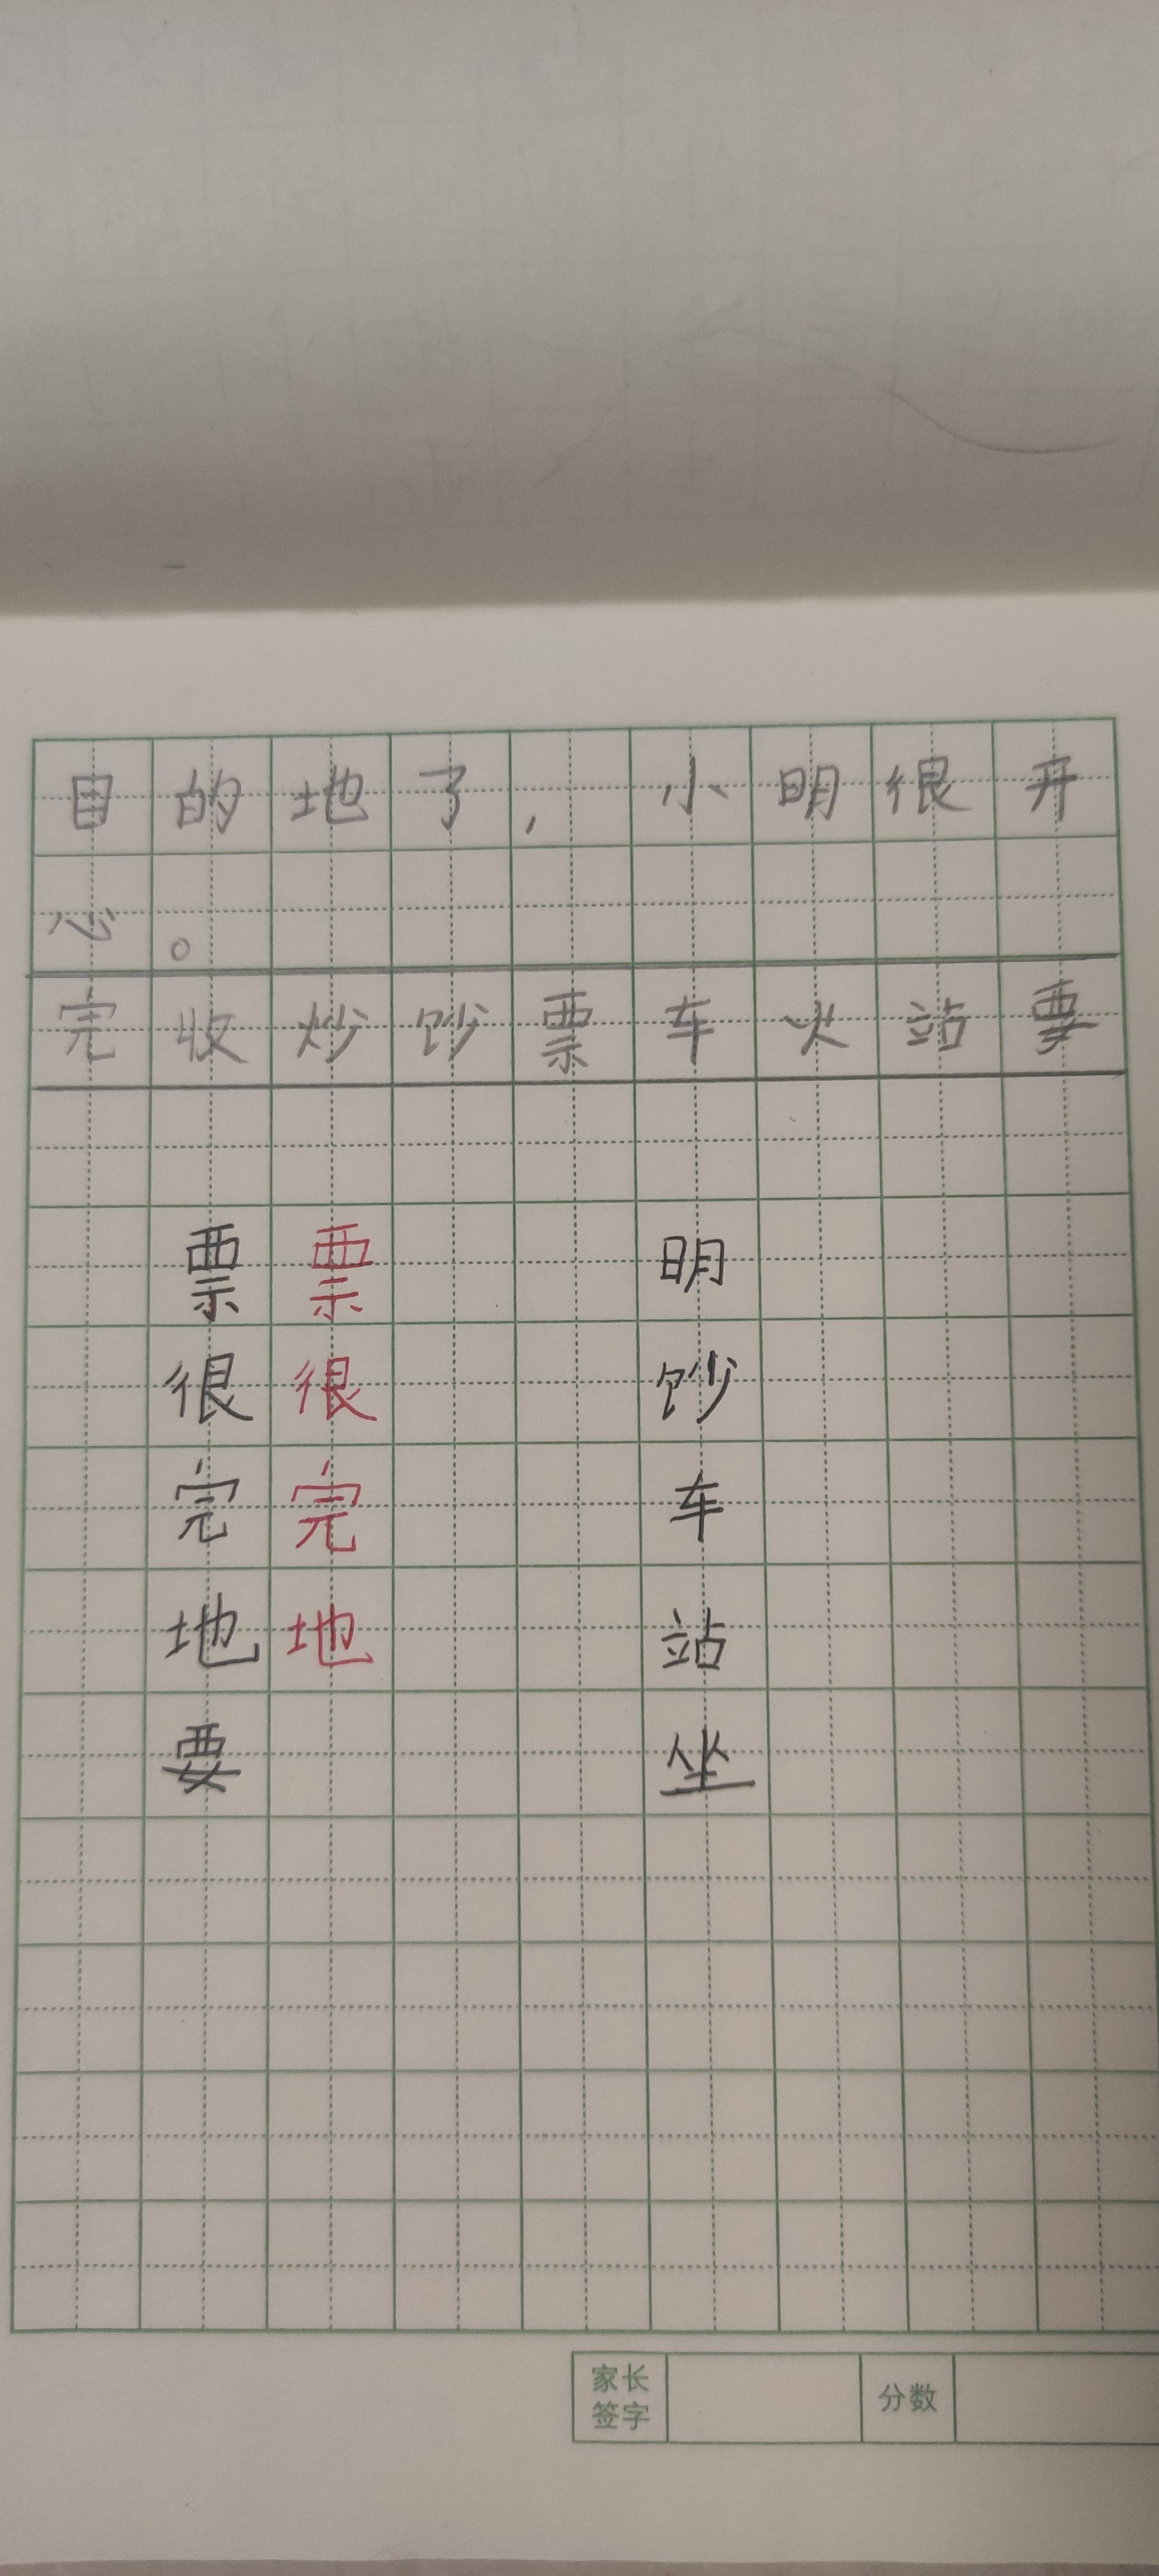 目的地了，小明很开
心。
完收炒饣少票车火站要
票票明
很很饣少
完完车
地地站
要坐
家长签字 分数